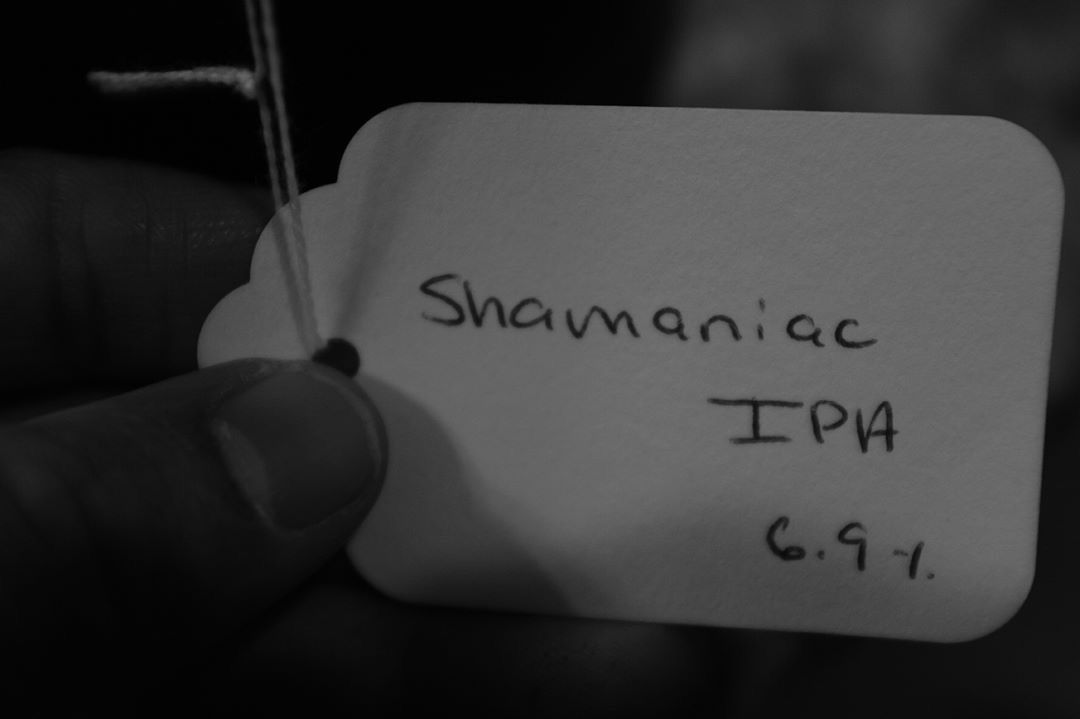 Shamaniac
IPA
6.9%